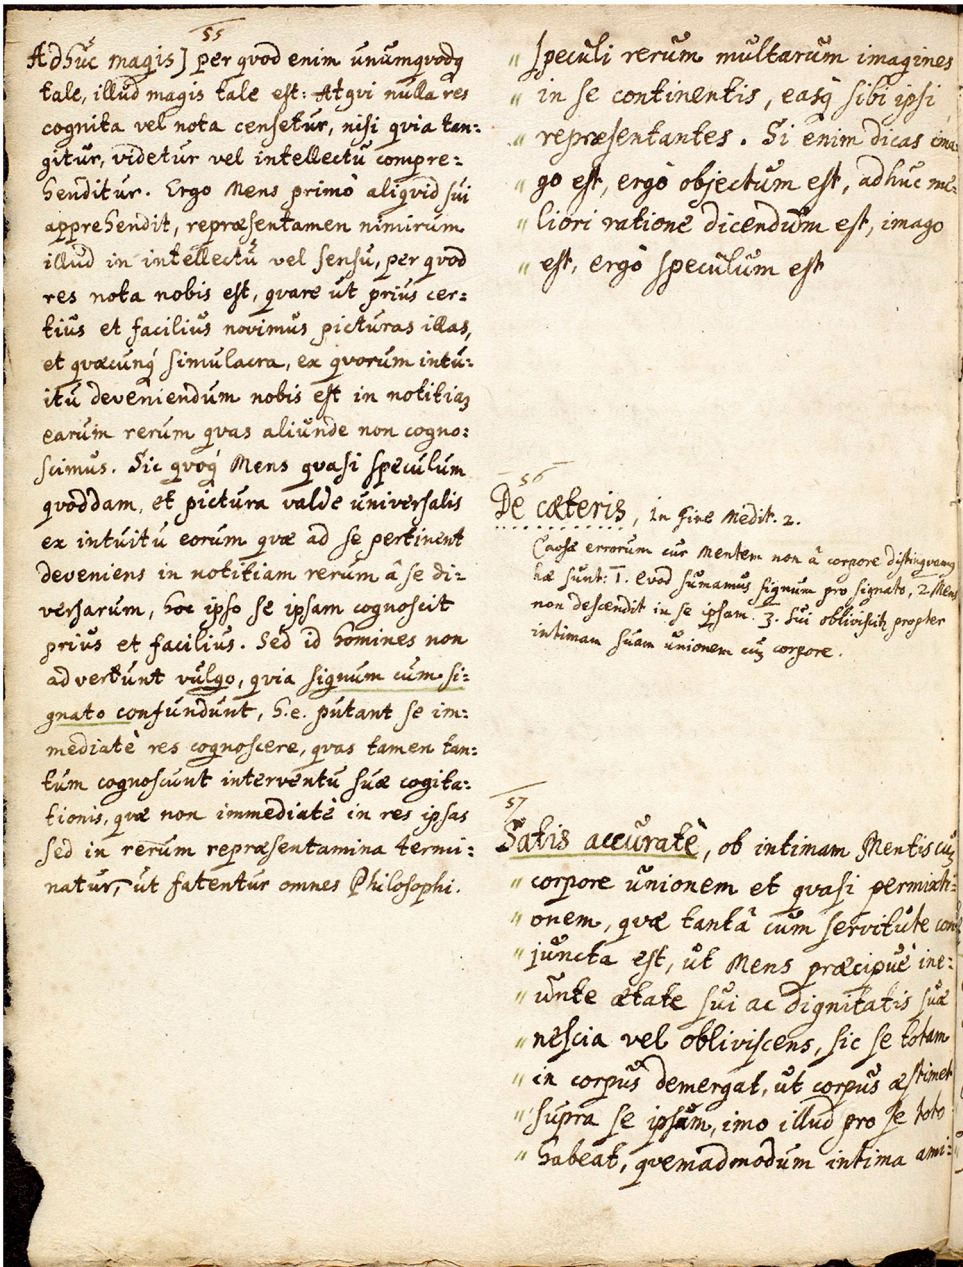 55
Adhuc magis] per qvod enim unumqvodq
tale, illud magis tale est: Atqvi nulla res
cognita vel nota censetur, nisi qvia tan:
gitur, videtur vel intellectu compre:
henditur. Ergo Mens primò aliqvid sui
apprehendit, repræsentamen nimirum
illud in intellectu vel sensu, per qvod
res nota nobis est, qvare ut prius cer:
tius et facilius novimus picturas illas,
et qvæcunq simulacra, ex qvorum intu:
itu deveniendum nobis est in notitiaz
earum rerum qvas aliunde non cogno:
scimus. Sic qvoq Mens qvasi speculum
qvoddam, et pictura valde universalis
ex intuitu eorum qvæ ad se pertinent
deveniens in notitiam rerum â se di:
versarum, hoc ipso se ipsam cognoscit
prius et facilius. Sed id homines non
advertunt vulgo, qvia signum cum si:
gnato confundunt, h.e. putant se im:
mediatè res cognoscere, qvas tamen tan:
tum cognoscunt interventu suæ cogita:
tionis, qvæ non immediatè in res ipsas
sed in rerum repræsentamina termi:
natur, ut fatentur omnes Philosophi.
" speculi rerum multarum imagines
" in se continentis, easq sibi ipsi
" repræsentantes. Si enim dicas ima:
" go est, ergò objectum est, adhuc me:
" liori ratione dicendum est, imago
" est, ergò speculum est
56
De cæteris, in fine Medit. 2.
Caosæ errorum cur Mentem non â corpore distingvamq
hæ sunt: 1. Qvod sumamus signum pro signato, 2. Mens
non descendit in se ipsam. 3. Sui obliviscitr propter
intimam suam unionem cuz corpore.
57
Satis accuratè, ob intimam Mentis cuz
" corpore unionem et qvasi permixti:
" onem, qvæ tantâ cum servitute con
" juncta est, ut Mens præcipuè ine:
" unte ætate sui ac dignitatis suæ
" nescia vel obliviscens, sic se totam
" in corpus demergat, ut corpus æstimet
" supra se ipsam, imo illud pro se toto
" habeat, qvemadmodum intima ami: